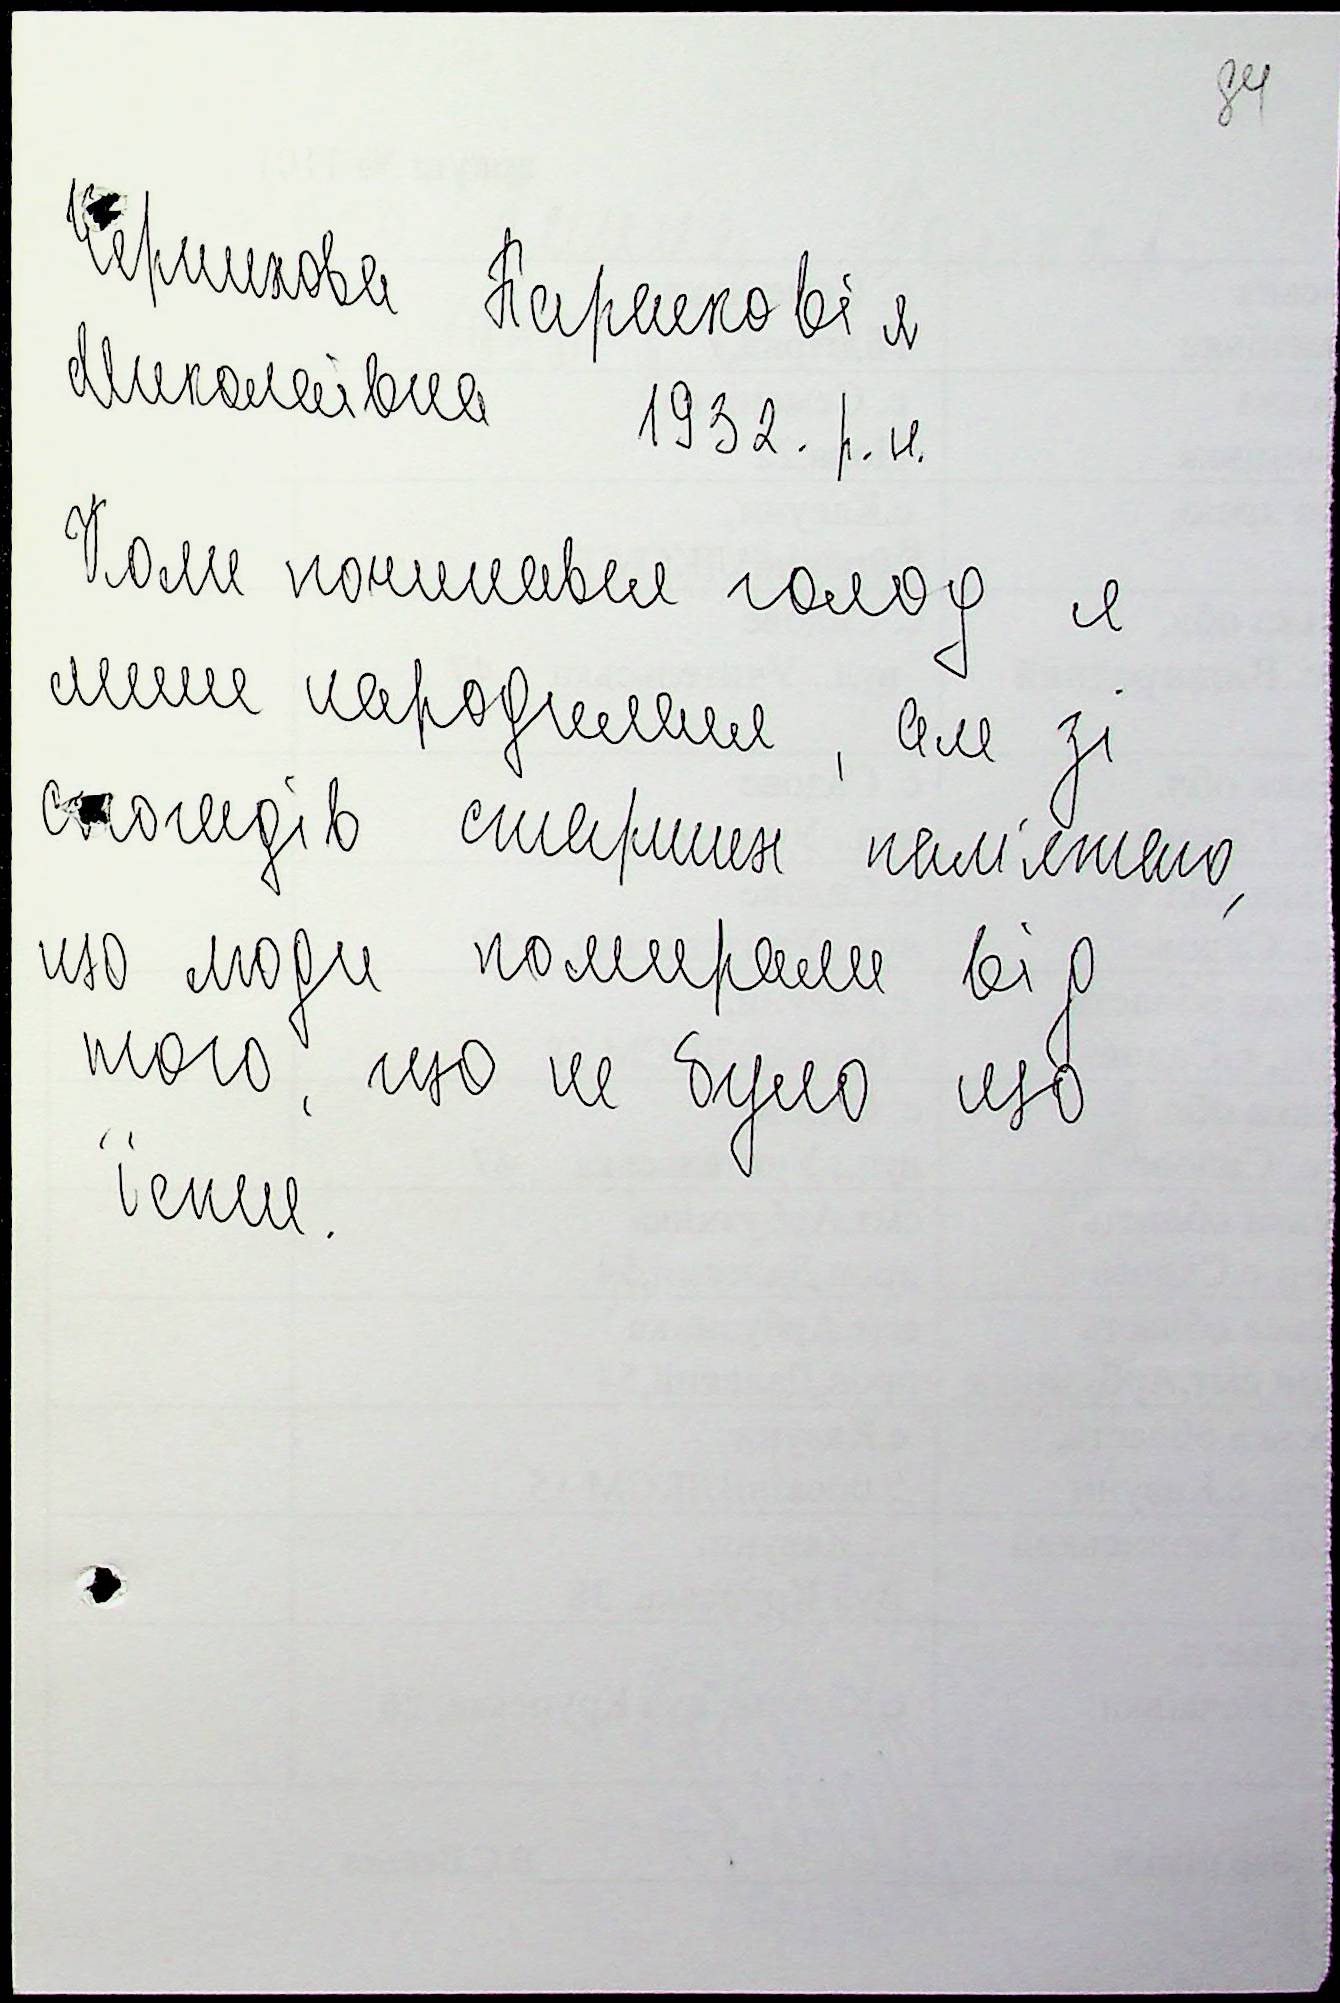 84
Парасковія
Миколаївна 1932. р. н.
Коли починався голод я
лише народилася, але зі
спогадів старших пам'ятаю,
що люди помирали від
того, що не було що
їсти.